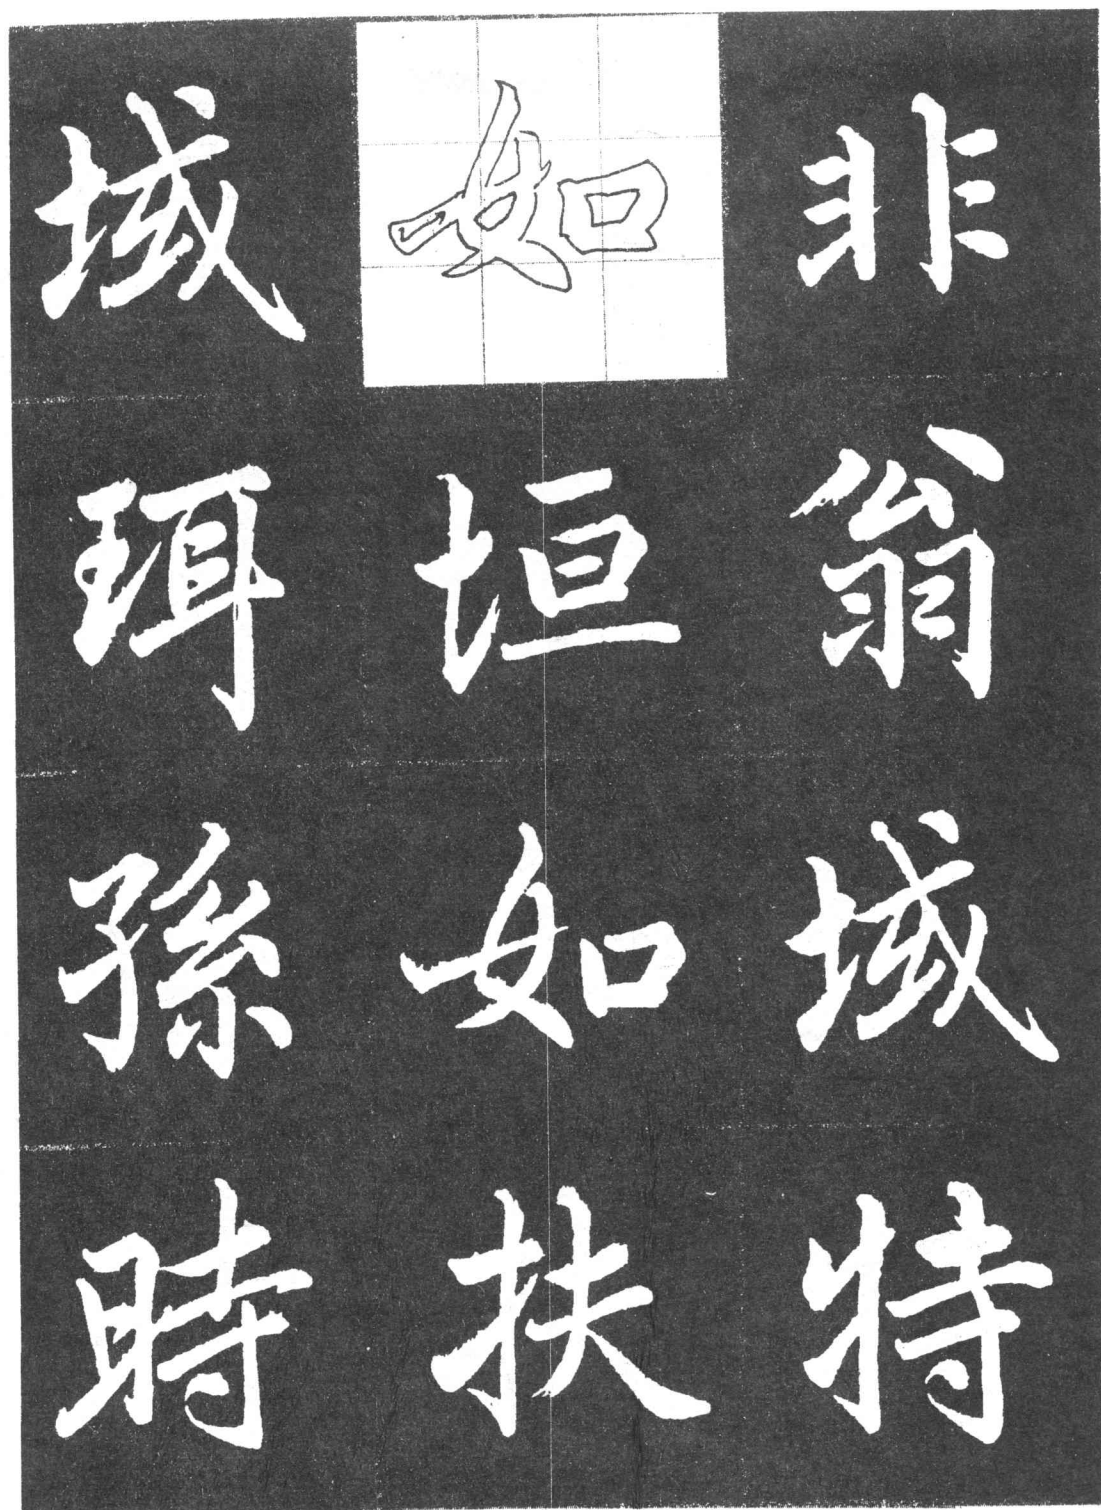 非翁域特
如垣如扶
域珥孫時